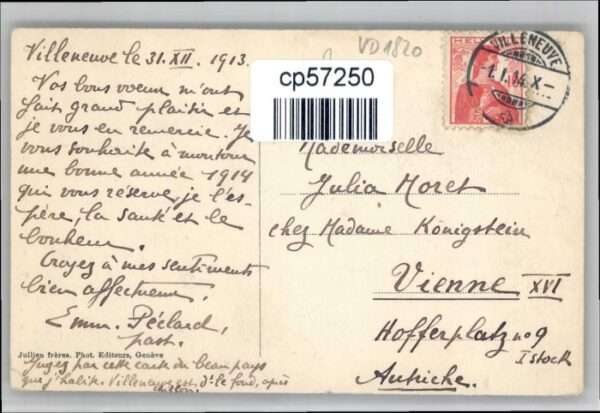 Villeneuve le 31.XII. 1913.
Vos bons voeux m'ont
fait grand plaisir et
je vous en remercie. Je
vous souhaite à mon tour
une bonne année 1914
qui vous réserve, je l'es-
père, la santé et le
bonheur.
Croyez à mes sentiments
bien affectueux,
Emm. Péclard,
past.
Jullien frères, Phot. Editeurs, Genève
Jugez par cette carte du beau pays
que j'habite. Villeneuve est, ds le fond, après
VD 1820
cp57250
VILLENEUVE
1.I.14.X-
HELVETIA
Mademoiselle
Julia Moret
chez Madame Königstein
Vienne XVI
Hofferplatz no 9
I stock
Autriche.